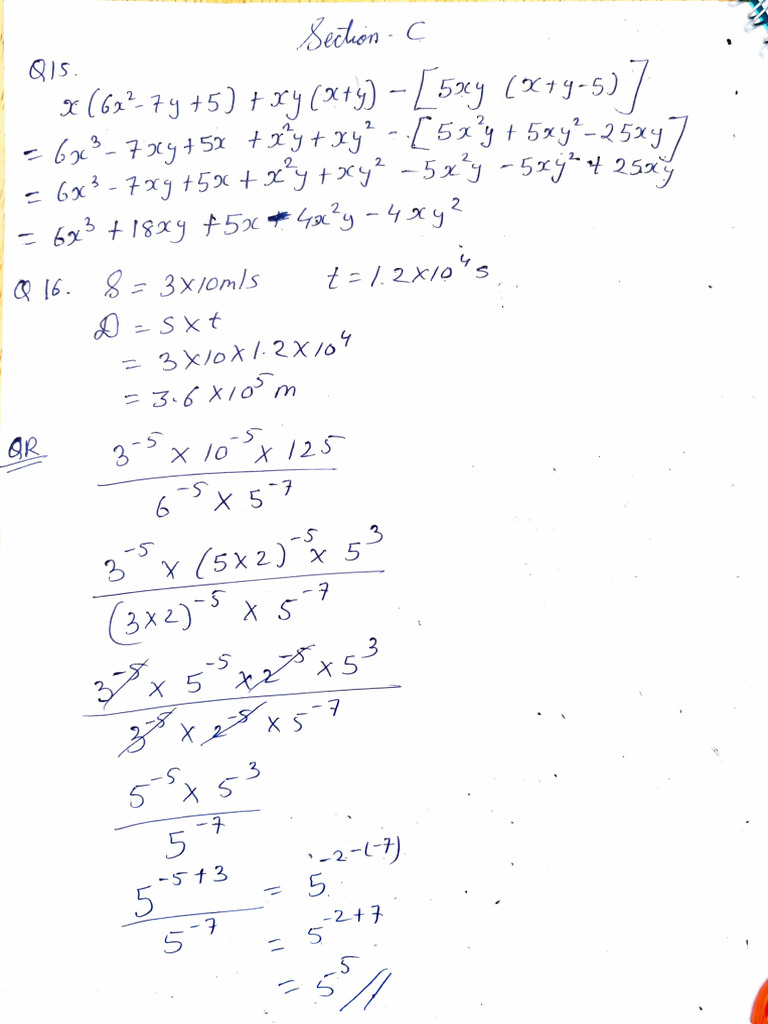 Section - C
Q15.
x(6x² - 7y + 5) + xy(x+y) - [5xy (x+y-5)]
= 6x³ - 7xy + 5x + x²y + xy² - [5x²y + 5xy² - 25xy]
= 6x³ - 7xy + 5x + x²y + xy² - 5x²y - 5xy² + 25xy
= 6x³ + 18xy + 5x - 4x²y - 4xy²
Q 16. S = 3×10m/s t = 1.2×10⁴s
D = S×t
= 3×10×1.2×10⁴
= 3.6×10⁵ m
QR
3⁻⁵ × 10⁻⁵ × 125
6⁻⁵ × 5⁻⁷
3⁻⁵ × (5×2)⁻⁵ × 5³
(3×2)⁻⁵ × 5⁻⁷
3⁻⁵ × 5⁻⁵ × 2⁻⁵ × 5³
3⁻⁵ × 2⁻⁵ × 5⁻⁷
5⁻⁵ × 5³
5⁻⁷
5⁻⁵⁺³ = 5⁻²⁻⁽⁻⁷⁾
5⁻⁷ = 5⁻²⁺⁷
= 5⁵//